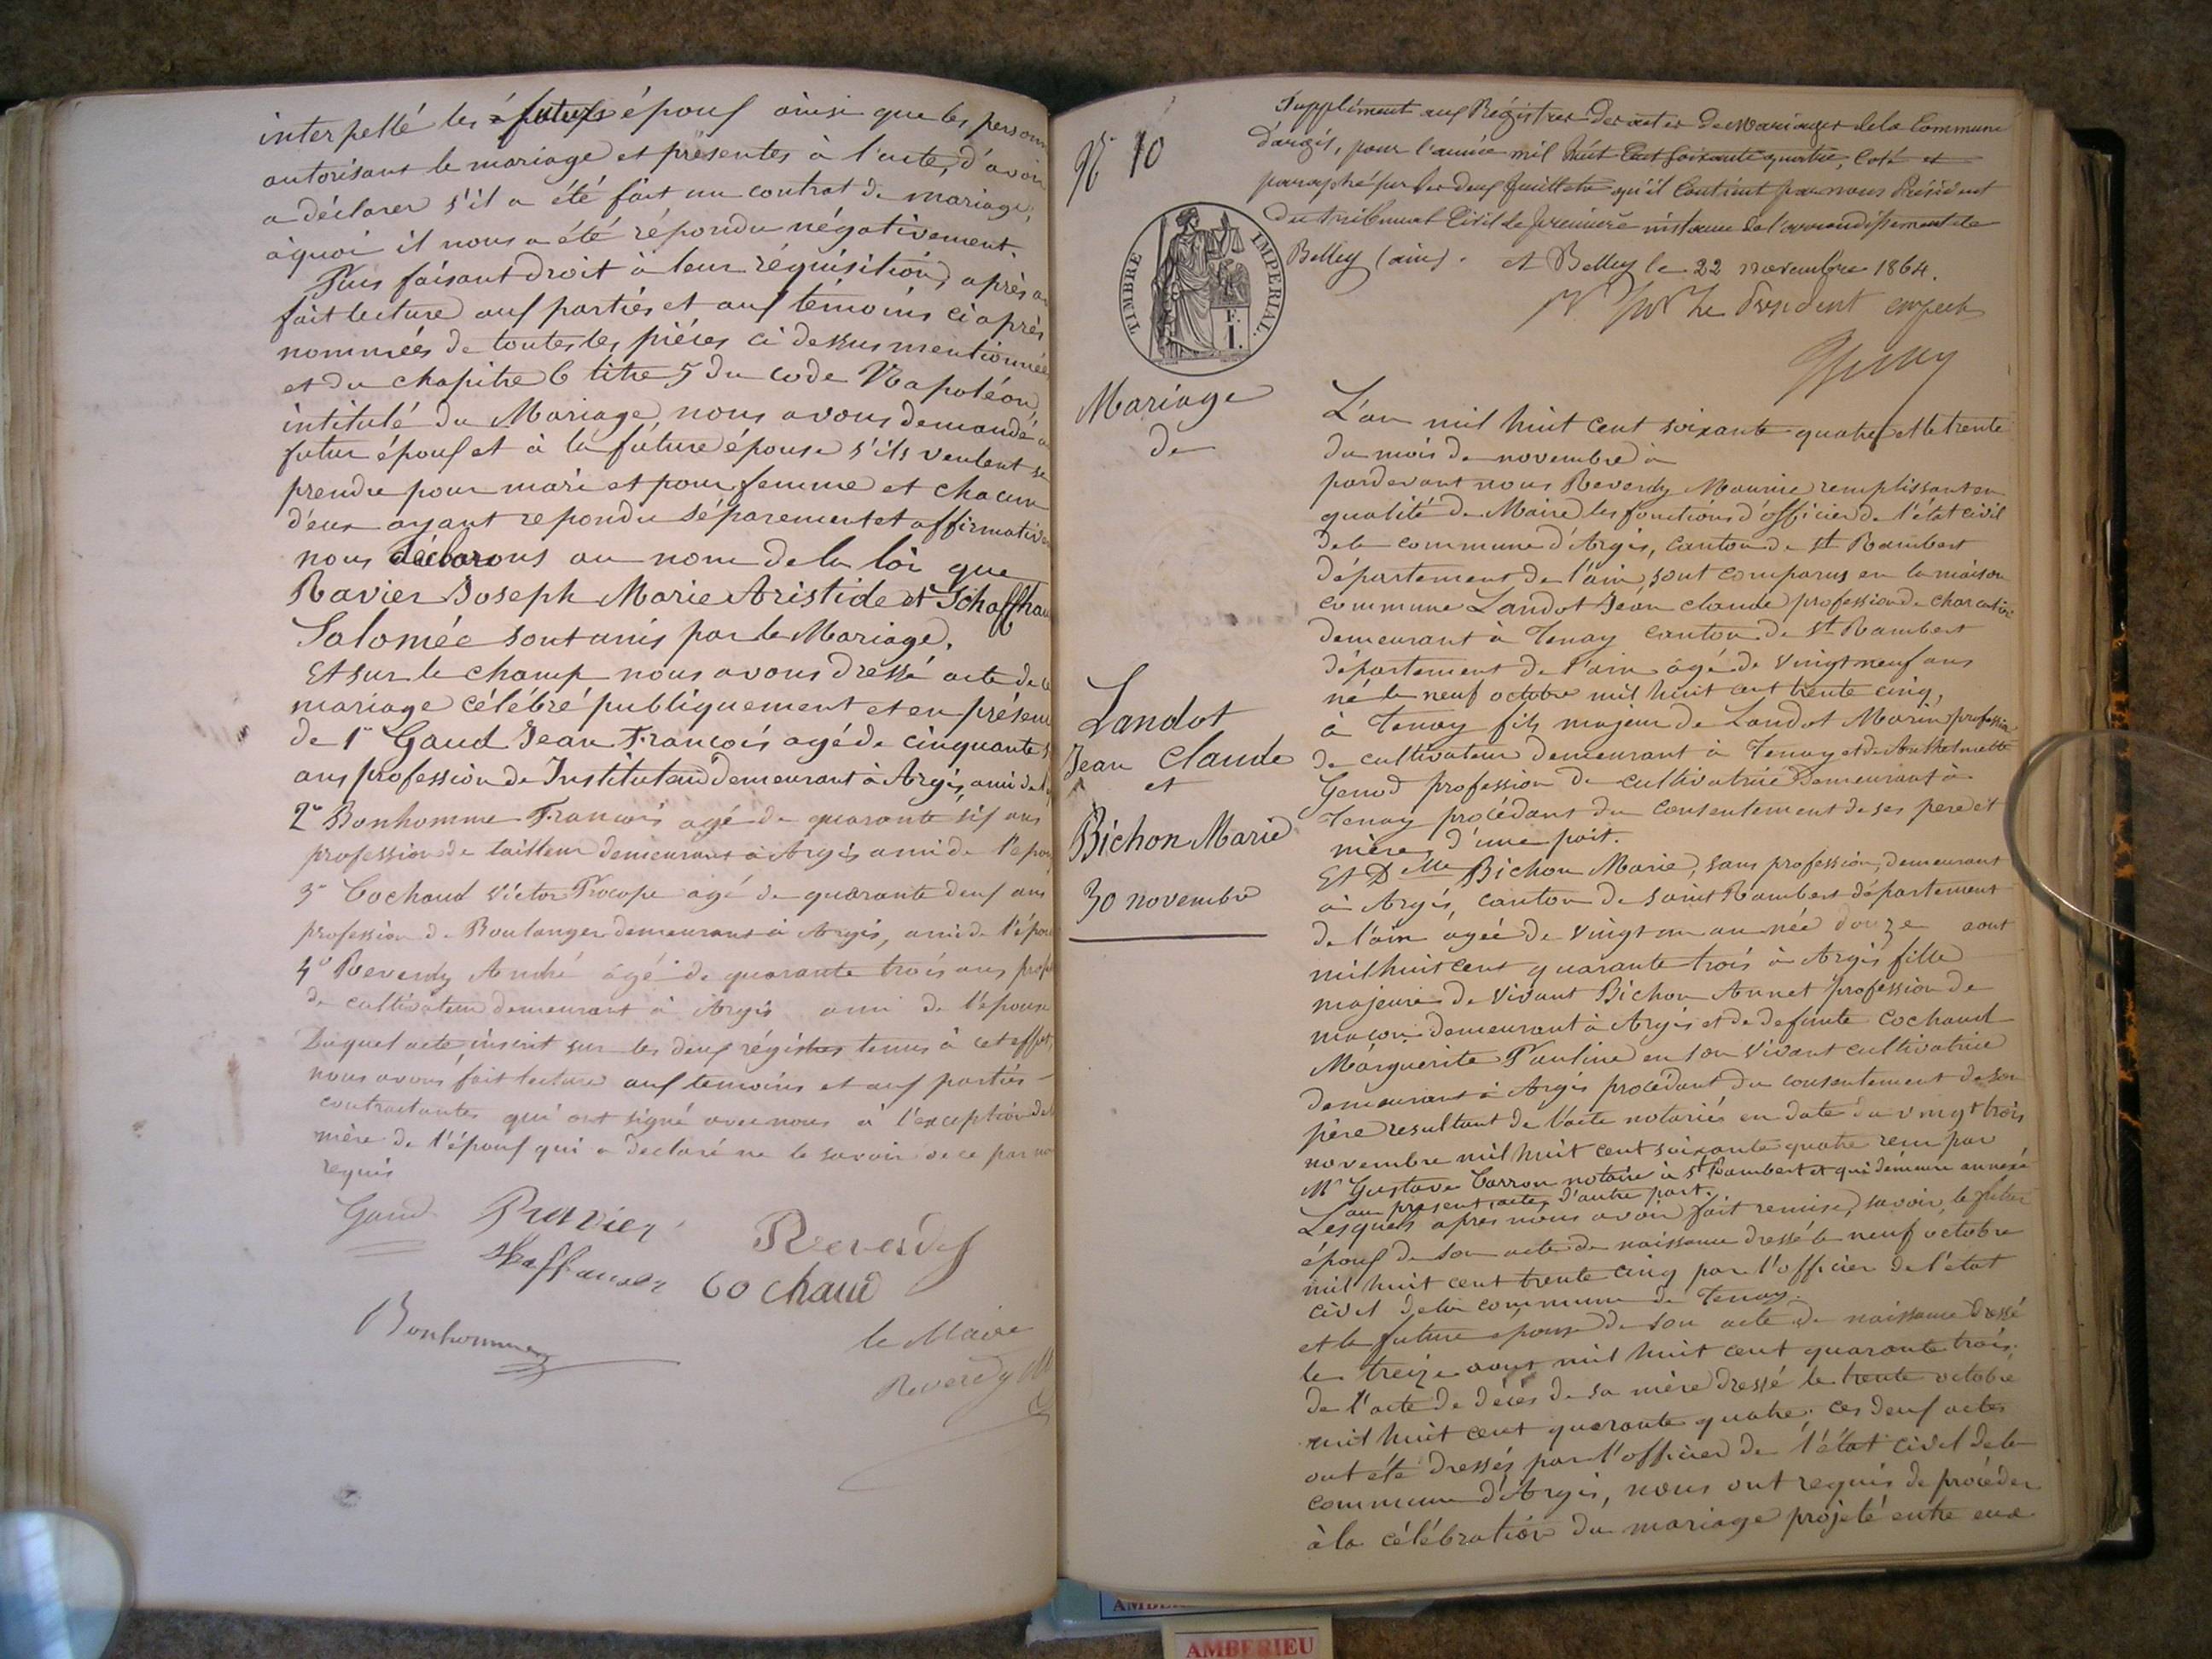 interpellé les futurs époux ainsi que les person
autorisant le mariage et présentes à l'acte, d'avoir
a déclarer s'il a été fait un contrat de mariage,
à quoi il nous a été répondu négativement.
Puis faisant droit à leur réquisition, après a
fait lecture aux parties et aux témoins ci après
nommées de toutes les pièces ci dessus mentionnée
et du chapitre 6 titre 5 du code Napoléon,
intitulé du Mariage, nous avons demandé a
futur époux et à la future épouse s'ils veulent se
prendre pour mari et pour femme et chacun
d'eux ayant repondu séparement et affirmativ
nous déclarons au nom de la loi que
Ravier Joseph Marie Aristide et Schaffhau
Salomée sont unis par le Mariage.
Et sur le champ nous avons dressé acte de ce
mariage célébré publiquement et en présenc
de 1° Gaud Jean François agé de cinquante
ans profession de Instituteur demeurant à Argis, ami de l
2° Bonhomme François agé de quarante six ans
profession de tailleur demeurant à Argis ami de l'épou
3° Cochaud Victor Procope agé de quarante deux ans
profession de Boulanger demeurant à Argis, ami de l'épou
4° Reverdy André âgé de quarante trois ans prof
de cultivateur demeurant à Argis ami de l'épouse
Duquel acte, inscrit sur les deux régistres tenus à cet effet,
nous avons fait lecture aux temoins et aux parties
contractantes qui ont signé avec nous à l'exception de l
mère de l'époux qui a declaré ne le savoir de ce par no
requis
Gaud Ravier Reverdy
Cochaud
Bonhomme
le Maire
Reverdy M
N° 10
Supplément aux Régistres des actes de Mariages de la Commune
d'argis, pour l'année mil huit cent soixante quatre, coté et
paraphé sur les deux feuillets qu'il contient par nous Président
du tribunal Civil de première instance de l'arrondissement de
Belley (ain). et Belley le 22 novembre 1864.
Le President
TIMBRE IMPERIAL.
F.
1.
Mariage
de
Landot
Jean Claude
et
Bichon Marie
30 novembre
L'an mil huit cent soixante quatre et le trente
du mois de novembre à
pardevant nous Reverdy Maurice remplissant en
qualité de Maire les fonctions d'officier de l'état civil
de la commune d'Argis, canton de St Rambert
département de l'ain, sont comparus en la maison
commune Landot Jean claude profession de charcutier
demeurant à Tenay canton de St Rambert
département de l'ain âgé de vingt neuf ans
né le neuf octobre mil huit cent trente cinq,
à Tenay fils majeur de Landot Marin profession
de cultivateur demeurant à Tenay et de Anthelmette
Genod profession de cultivatrice demeurant à
Tenay procédant du consentement de ses pere et
mère, d'une part.
Et Delle Bichon Marie, sans profession, demeurant
à Argis, canton de saint Rambert département
de l'ain agée de vingt un an née douze aout
mil huit cent quarante trois à Argis fille
majeure de vivant Bichon Annet profession de
maçon demeurant à Argis et de defunte Cochaud
Marguerite Pauline en son vivant cultivatrice
demeurant à Argis procédant du consentement de son
père resultant de l'acte notariés en date du vingt trois
novembre mil huit cent soixante quatre recu par
Mr Gustave Carron notaire à St Rambert et qui demeure annexé
au present acte, d'autre part.
Lesquels apres nous avoir fait remise, savoir, le futur
époux de son acte de naissance dressé le neuf octobre
mil huit cent trente cinq par l'officier de l'état
civil de la commune de Tenay.
et la future epouse de son acte de naissance dressé
le treize aout mil huit cent quarante trois,
de l'acte de décès de sa mère dressé le trente octobre
mil huit cent quarante quatre, ces deux actes
ont été dressés par l'officier de l'état civil de la
commune d'Argis, nous ont requis de procéder
à la célébration du mariage projeté entre eux
AMBERIEU